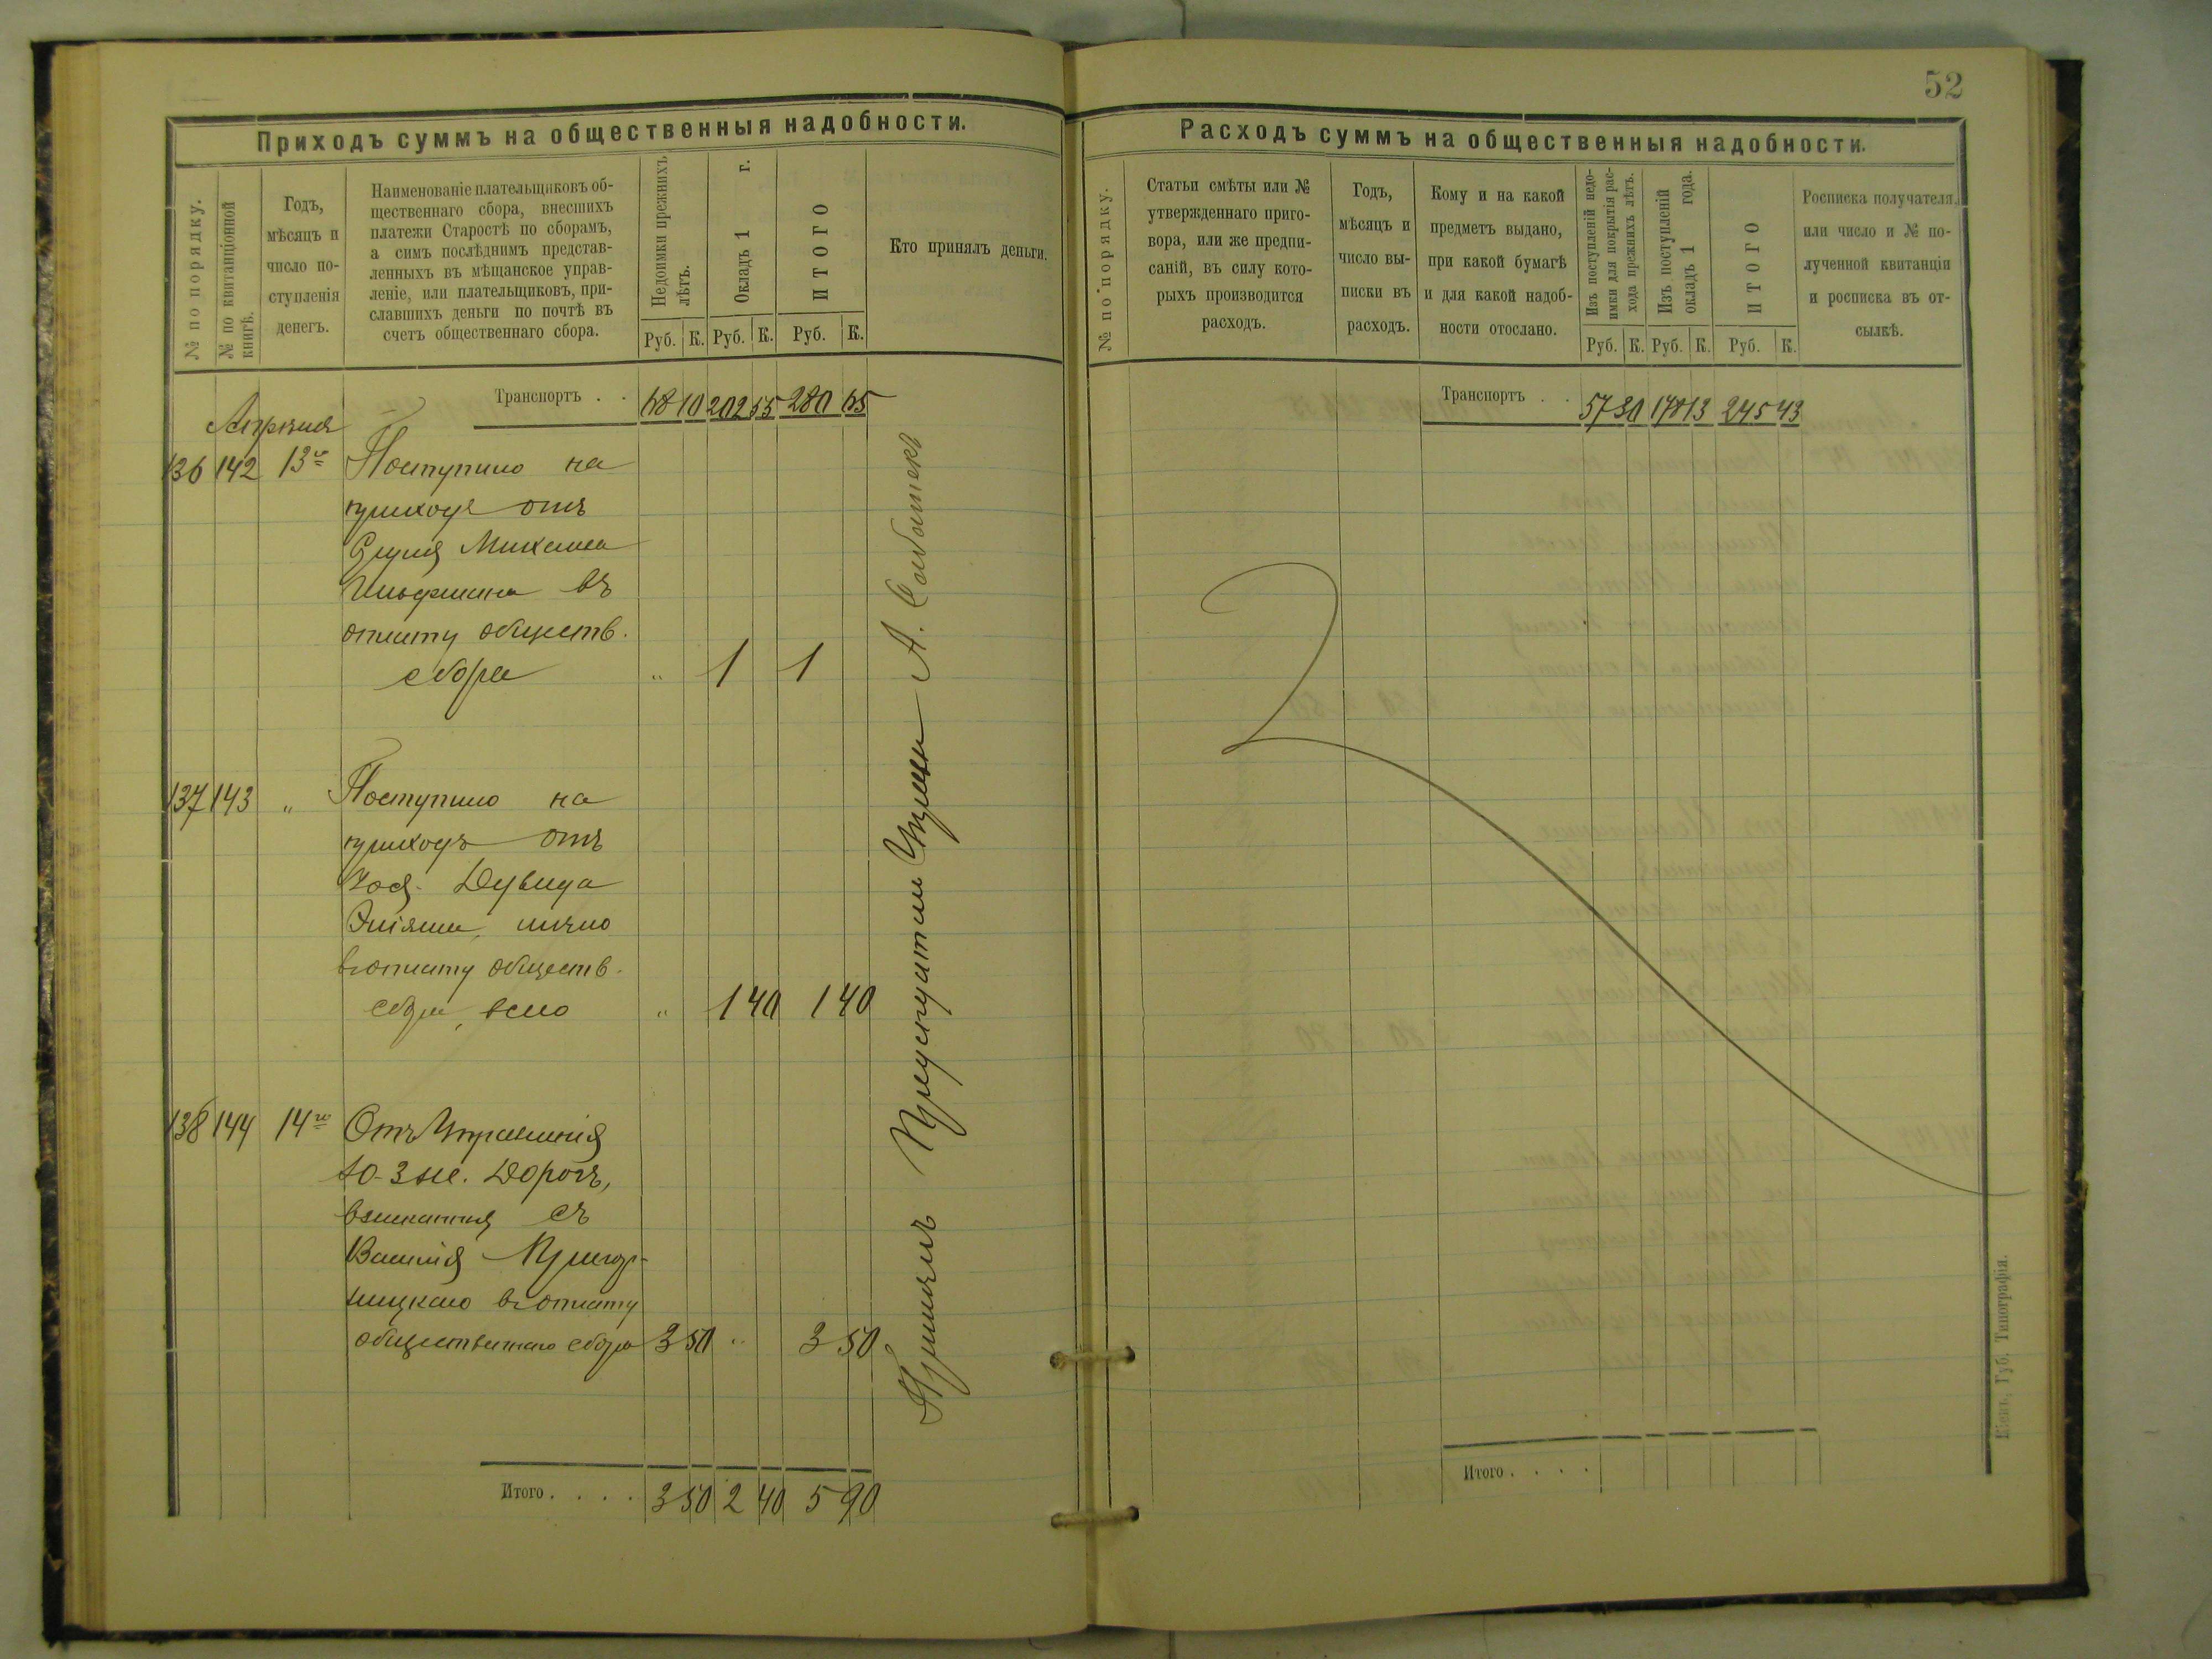 52
Приходъ суммъ на общественныя надобности.
№ по порядку.
№ по квитанціонной
книгѣ.
Годъ,
мѣсяцъ и
число по-
ступленія
денегъ.
Наименованіе плательщиковъ об-
щественнаго сбора, внесшихъ
платежи Старостѣ по сборамъ,
а симъ послѣднимъ представ-
ленныхъ въ мѣщанское управ-
леніе, или плательщиковъ, при-
славшихъ деньги по почтѣ въ
счетъ общественнаго сбора.
Недоимки прежнихъ
лѣтъ.
Окладъ 1 г.
ИТОГО
Кто принялъ деньги.
Руб. К. Руб. К. Руб. К.
Транспортъ . . 10 202 55 280 65
Апрѣля
136 142 13го Поступило на
приходъ отъ
Михаила
въ
отплату обществ.
сбора „ 1 1
137 143 „ Поступило на
приходъ отъ
Дувида
лично
въ отплату обществ.
сбора, всего „ 1 40 1 40
138 144 14го Отъ Управленія
Ю-З же. Дорогъ,
съ
Василія
въ отплату
общественнаго сбора 3 50 „ 3 50
Итого . . . . 3 50 2 40 5 90
Принялъ А.
Расходъ суммъ на общественныя надобности.
№ по порядку.
Статьи смѣты или №
утвержденнаго приго-
вора, или же предпи-
саній, въ силу кото-
рыхъ производится
расходъ.
Годъ,
мѣсяцъ и
число вы-
писки въ
расходъ.
Кому и на какой
предметъ выдано,
при какой бумагѣ
и для какой надоб-
ности отослано.
Изъ поступленій недо-
имки для покрытія рас-
хода прежнихъ лѣтъ.
Изъ поступленій
окладъ 1 года.
ИТОГО
Росписка получателя,
или число и № по-
лученной квитанціи
и росписка въ от-
сылкѣ.
Руб. К. Руб. К. Руб. К.
Транспортъ . . 57 30 13 245 43
Итого . . . .
Кіевъ, Губ. Типографія.